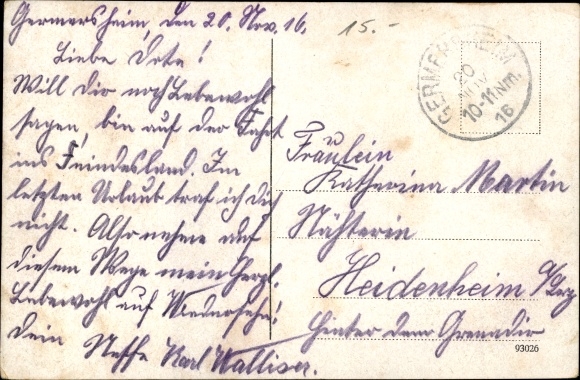 Germersheim, den 20. Nov. 16.
15.-
Liebe Dota!
Will dir noch Lebewohl
sagen, bin auf der Fahrt
ins Feindesland. Im
letzten Urlaub traf ich dich
nicht. Also nehme auf
diesem Wege mein herzl.
Lebewohl auf Wiedersehn!
dein Neffe Karl Walliser.
GERMERSHEIM
20
NOV
10-11 Nm.
16
Fräulein
Katharina Martin
Nähterin
Heidenheim
hinter dem Grenadir
93026